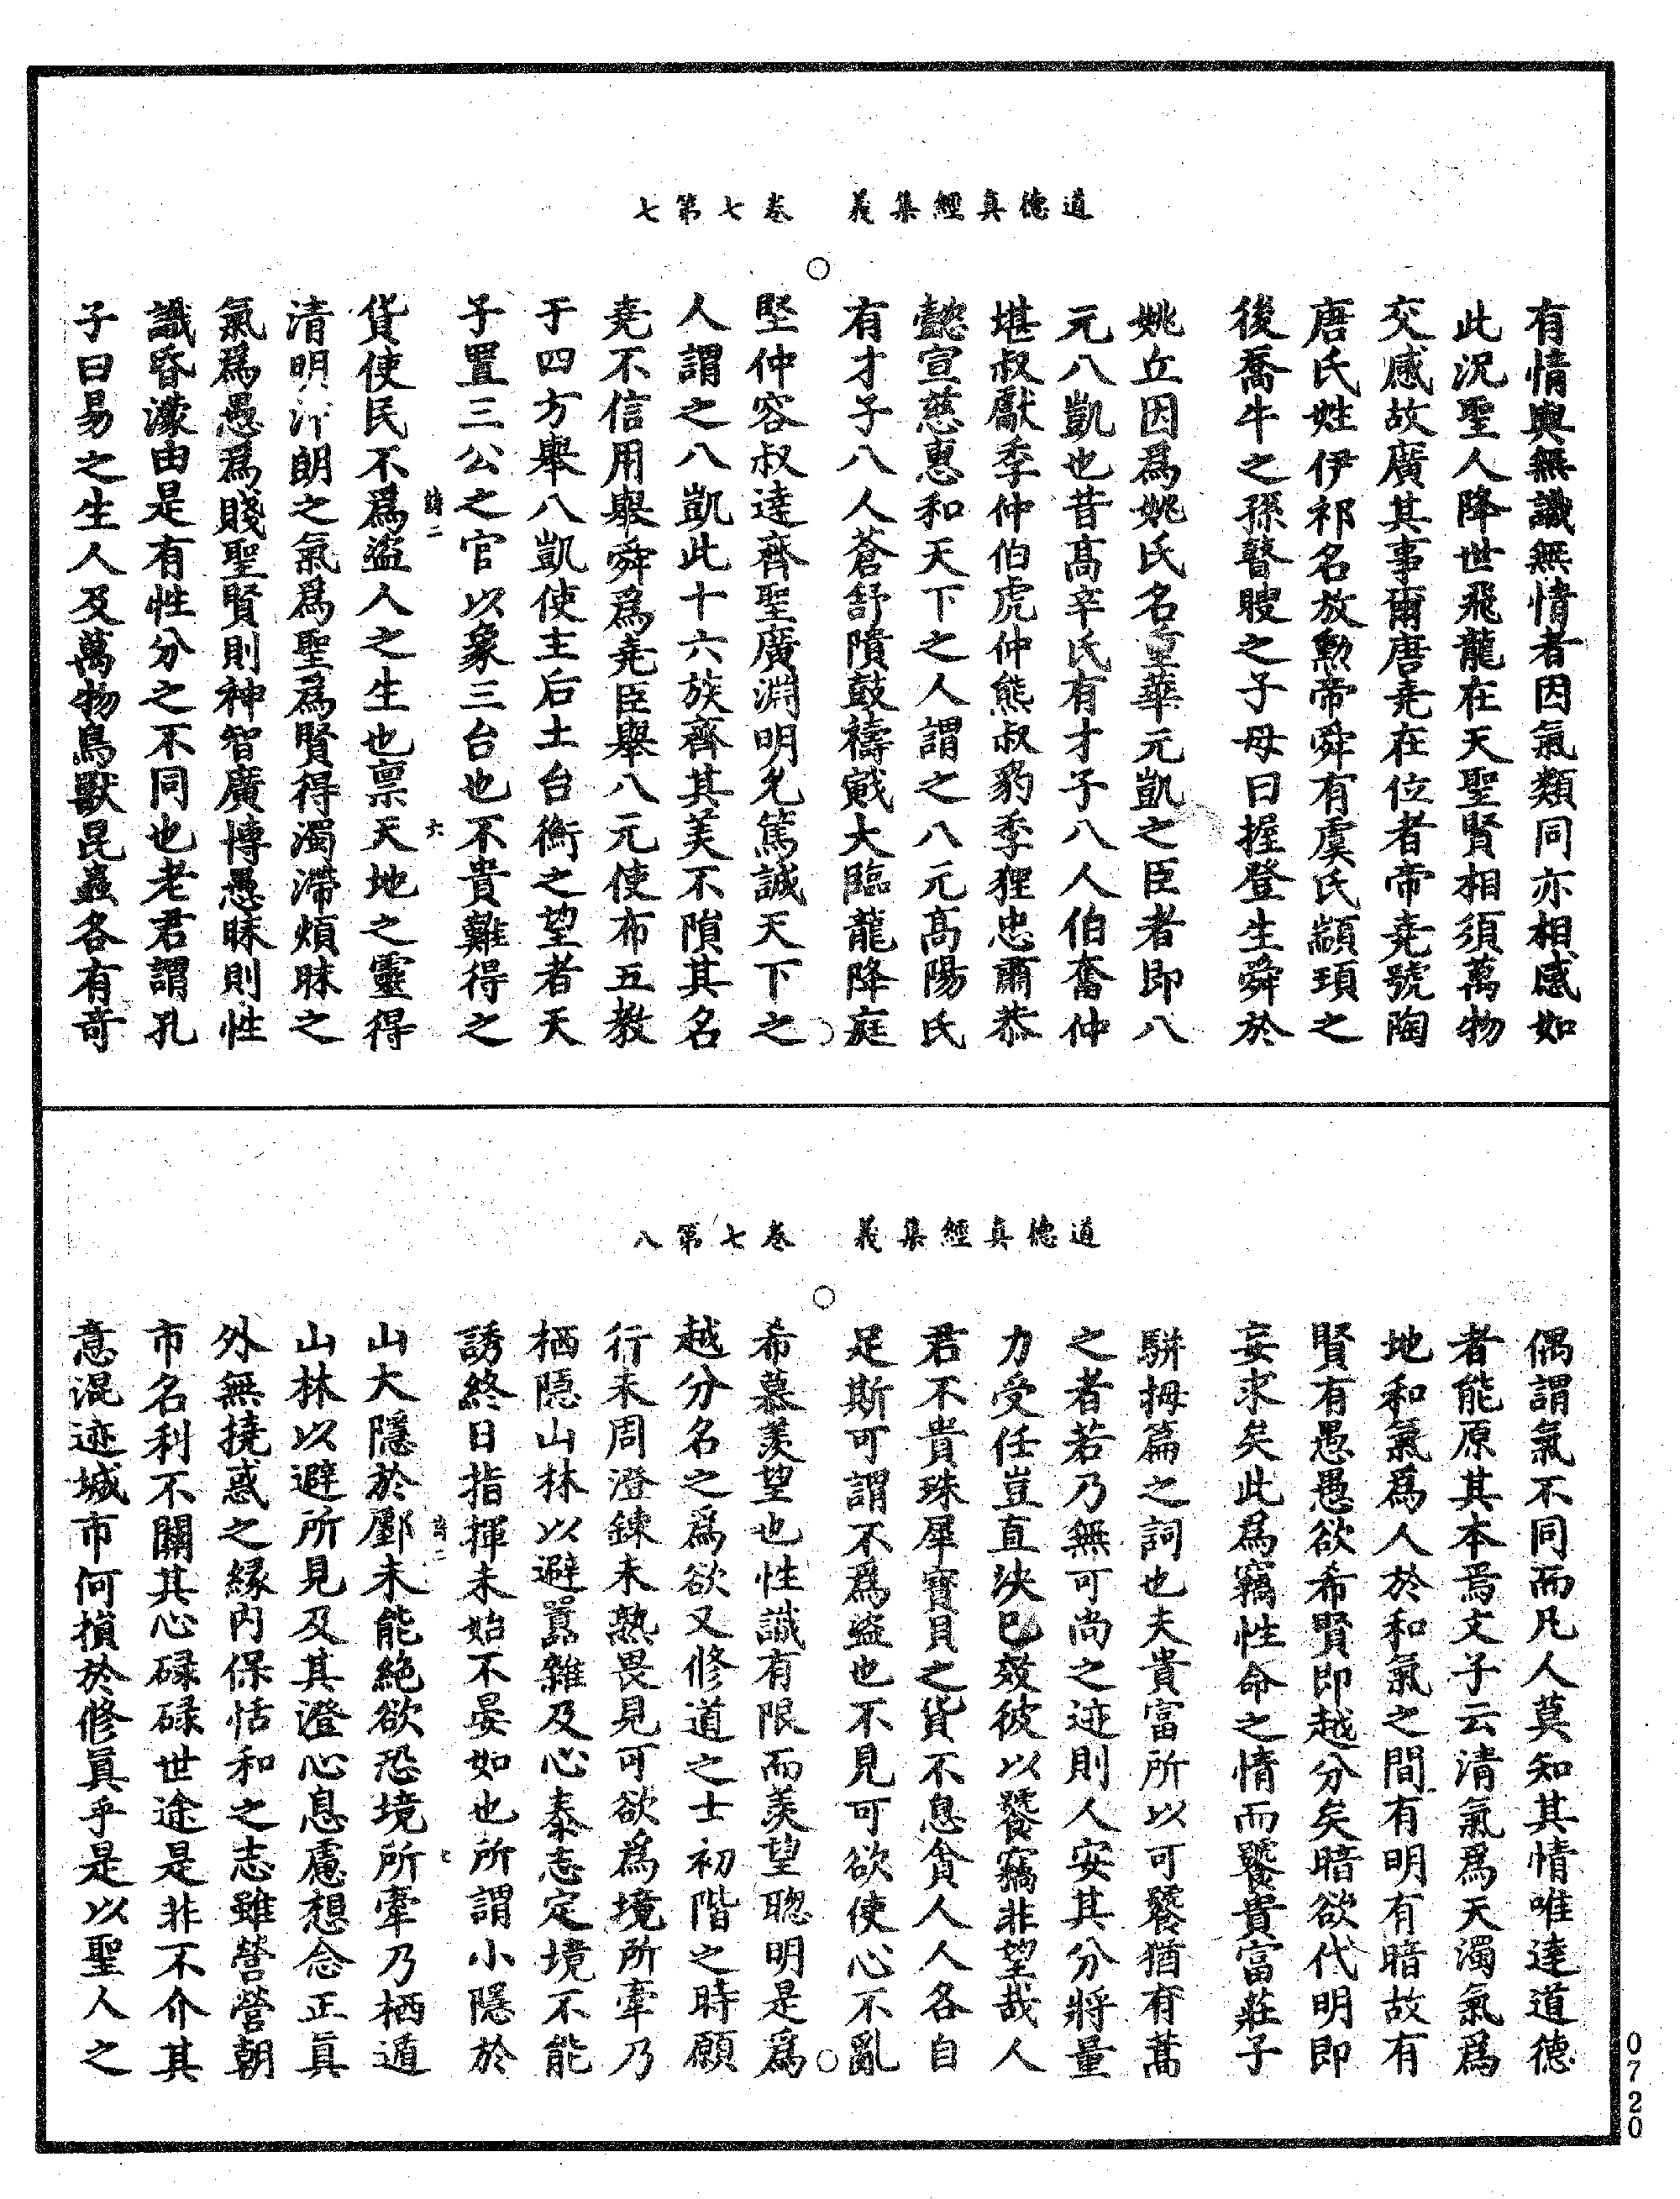 道德真經集義　卷七第七
有情與無識無情者因氣類同亦相感如
此況聖人降世飛龍在天聖賢相須萬物
交感故廣其事爾唐堯在位者帝堯號陶
唐氏姓伊祁名放勲帝舜有虞氏顓頊之
後喬牛之孫瞽瞍之子母曰握登生舜於
姚丘因爲姚氏名重華元凱之臣者即八
元八凱也昔髙辛氏有才子八人伯奮仲
堪叔獻季仲伯虎仲熊叔豹季狸忠肅恭
懿宣慈惠和天下之人謂之八元髙陽氏
有才子八人蒼舒隤敱檮戭大臨龍降庭
堅仲容叔達齊聖廣淵明允篤誠天下之
人謂之八凱此十六族齊其美不隕其名
堯不信用舉舜爲堯臣舉八元使布五教
于四方舉八凱使主后土台衡之望者天
子置三公之官以象三台也不貴難得之
詩二　六
貨使民不爲盜人之生也稟天地之靈得
清明沖朗之氣爲聖爲賢得濁滯煩昧之
氣爲愚爲賤聖賢則神智廣博愚昧則性
識昏濛由是有性分之不同也老君謂孔
子曰易之生人及萬物鳥獸昆蟲各有奇
道德真經集義　卷七第八
偶謂氣不同而凡人莫知其情唯達道德
者能原其本焉文子云清氣爲天濁氣爲
地和氣爲人於和氣之間有明有暗故有
賢有愚愚欲希賢即越分矣暗欲代明即
妄求矣此爲竊性命之情而饕貴富莊子
駢拇篇之詞也夫貴富所以可饕猶有蒿
之者若乃無可尚之迹則人安其分將量
力受任豈直決巳效彼以饕竊非望哉人
君不貴珠犀寳貝之貨不息貪人人各自
足斯可謂不爲盜也不見可欲使心不亂
希慕羡望也性識有限而羡望聰明是爲
越分名之爲欲又修道之士初階之時願
行未周澄錬未熟畏見可欲爲境所牽乃
栖隱山林以避囂雜及心泰志定境不能
誘終日指揮未始不晏如也所謂小隱於
詩二　七
山大隱於鄽未能絶欲恐境所牽乃栖遁
山林以避所見及其澄心息慮想念正真
外無撓惑之縁内保恬和之志雖營營朝
市名利不關其心碌碌世途是非不介其
意混迹城市何損於修眞乎是以聖人之
0720